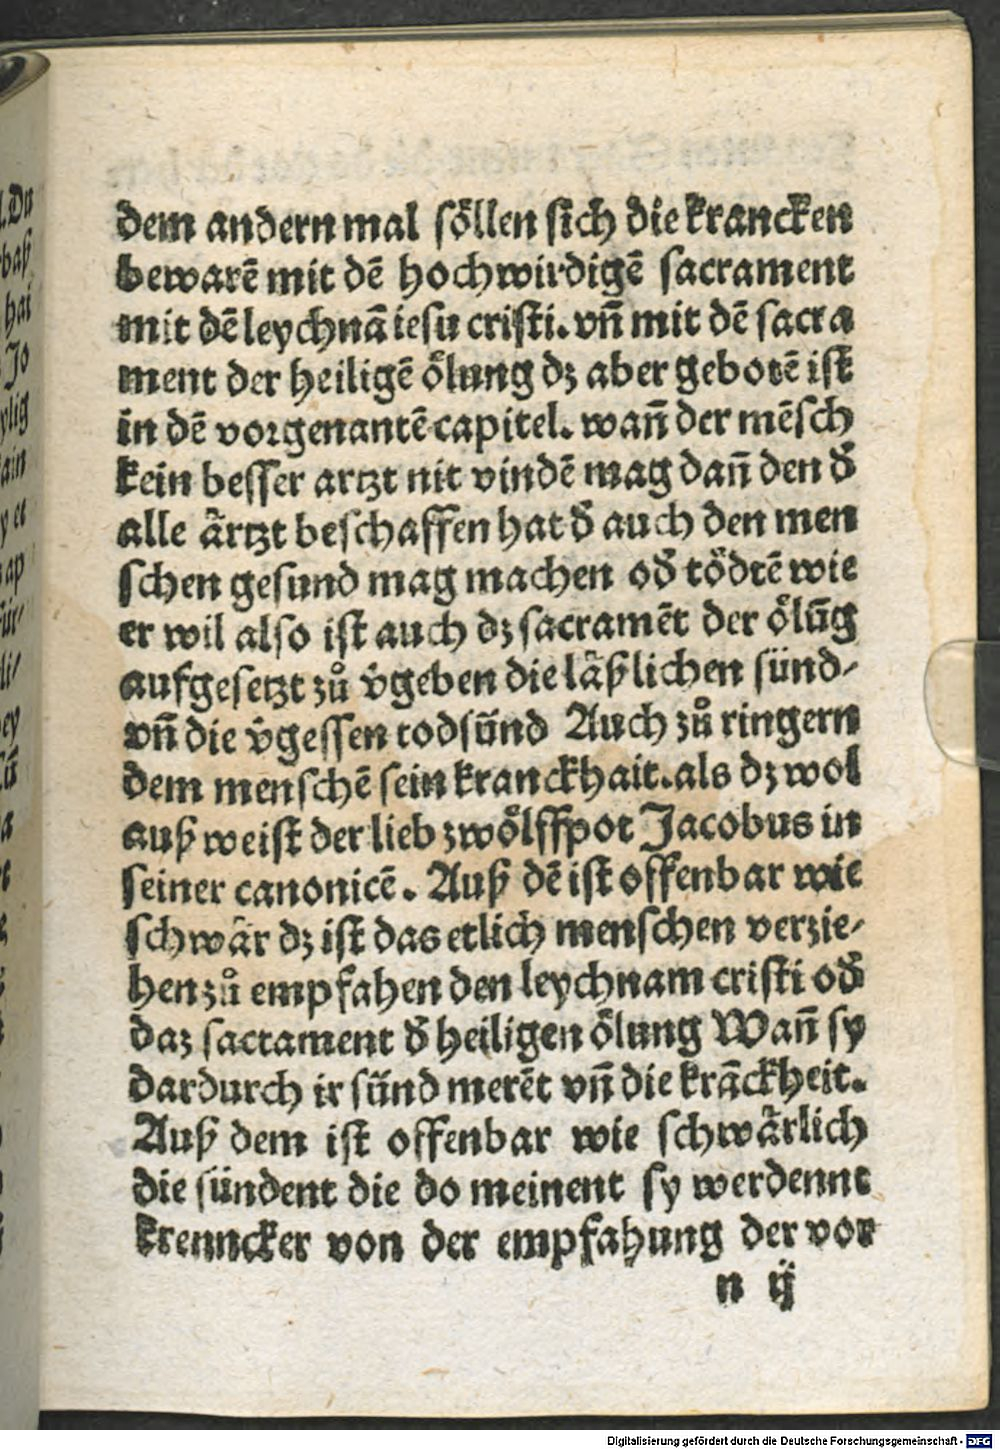 dem andern mal söllen sich die krancken
bewarē mit dē hochwirdigē sacrament
mit dē leychnā iesu cristi. vn̄ mit dē sacra
ment der heiligē oͤlung dꝫ aber gebotē ist
in dē vorgenantē capitel. wan̄ der mēsch
kein besser artzt nit vindē mag dan̄ den d̄
alle aͤrtzt beschaffen hat d̄ auch den men
schen gesund mag machen od̄ toͤdtē wie
er wil also ist auch dꝫ sacramēt der oͤlūg
aufgesetzt zů v̄geben die läßlichen sünd⸗
vn̄ die v̄gessen todsünd Auch zů ringern
dem menschē sein kranckhait. als dꝫ wol
auß weist der lieb zwoͤlffpot Jacobus in
seiner canonicē. Auß dē ist offenbar wie
schwaͤr dꝫ ist das etlich menschen verzie⸗
hen zů empfahen den leychnam cristi od̄
daz sacrament d̄ heiligen oͤlung Wan̄ sy
dardurch ir sünd merēt vn̄ die krāckheit.
Auß dem ist offenbar wie schwaͤrlich
die sündent die do meinent sy werdennt
krenncker von der empfahung der vor
n ij
l. Du
baß
hai
Jo
ylig
ain
y et
ap
für⸗
li⸗
ey
Digitalisierung gefördert durch die Deutsche Forschungsgemeinschaft - DFG